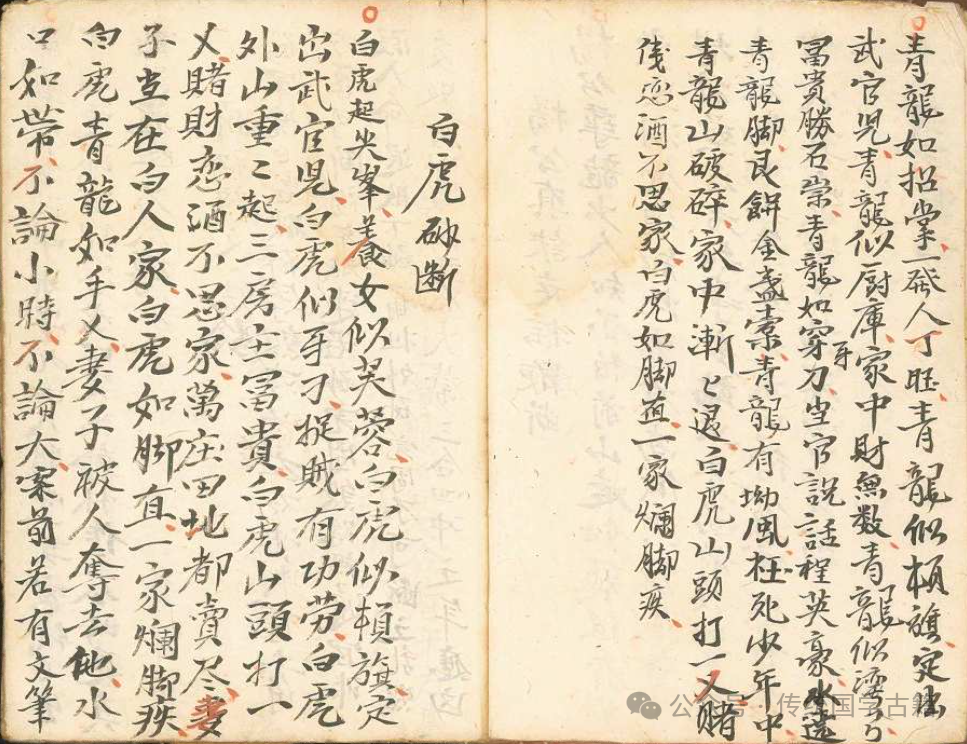 青龍如招掌一發人丁旺青龍似頓旗定出
武官児青龍似厨庫家中財無数青龍似湾弓
冨貴勝石崇青龍如穿牙刀出官說話程英豪水遶
青龍脚艮餅金盞橐青龍有坳風枉死少年中
青龍山破碎家中漸〻退白虎山頭打一乂賭
伐恋酒不思家白虎如脚直一家爛脚疾
白虎砂断
白虎起尖峯養女似芙蓉白虎似頓旗定
出武官児白虎似牙刁捉賊有功劳白虎
外山重〻起三房主冨貴白虎山頭打一
乂賭財恋酒不思家萬庄田地都賣尽妻
子立在白人家白虎如脚直一家爛脚疾
白虎青龍如手乂妻子被人奪去他水
口如帶不論小時不論大案前若有文筆
公众号·传生国学古籍